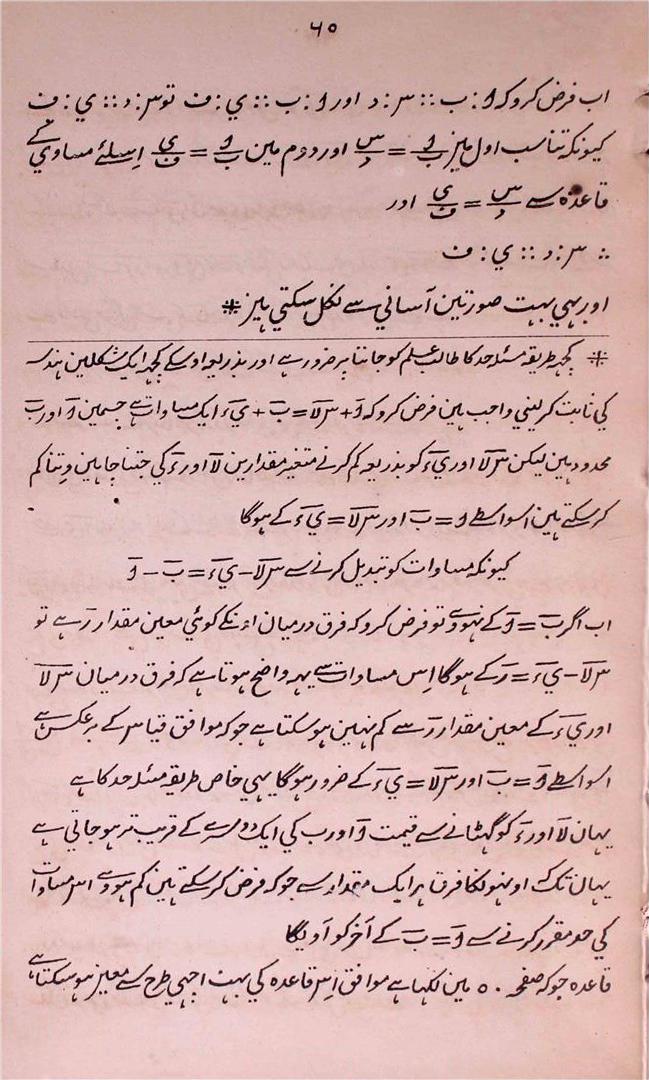 ۶۰
اب فرض کرو کہ ا : ب :: س : د اور ا : ب :: ي : ف تو س : د :: ي : ف
کیونکہ تناسب اول مین ا/ب = س/د اور دوم مین ا/ب = ي/ف اِسلئے مساوي کے
قاعدہ سے س/د = ي/ف اور
∴ س : د :: ي : ف
اور بہي بہت صورتین آساني سے نکل سکتي ہین *
* کچہہ طریقہ مسئلہ حد کا طالب علم کو جاننا پر ضرور ہے اور بذریعہ اوسکے کچہہ ایک شکلین ہندسہ
کي ثابت کرلیني واجب ہین فرض کرو کہ اَ + س لَا = بَ + ي ءَ ایک مساوات ہے جسمین اَ اور بَ
محدود ہین لیکن س لَا اور ي ءَ کو بذریعہ کم کرنے متغیر مقدارین لَا اور ءَ کي جتنا چاہین وتنا کم
کرسکتے ہین اسواسطے اَ = بَ اور س لَا = ي ءَ کے ہوگا
کیونکہ مساوات کو تبدیل کرنے سے س لَا − ي ءَ = بَ − اَ
اب اگر بَ = اَ کے نہووے تو فرض کرو کہ فرق درمیان اونکے کوئي معین مقدار رَ ہے تو
س لَا − ي ءَ = رَ کے ہوگا اِس مساوات سے یہہ واضح ہوتا ہے کہ فرق درمیان س لَا
اور ي ءَ کے معین مقدار رَ سے کم نہین ہوسکتا ہے جو کہ موافق قیاس کے برعکس ہے
اسواسطے اَ = بَ اور س لَا = ي ءَ کے ضرور ہوگا یہي خاص طریقہ مسئلہ حد کا ہے
یہان لَا اور ءَ کو گھٹانے سے قیمت اَ اور ب کي ایک دوسرے کے قریب تر ہوجاتي ہے
یہان تک کہ اونہونکا فرق ہر ایک مقدار سے جو کہ فرض کرسکتے ہین کم ہووے اس مساوات
کي حد مقرر کرنے سے اَ = بَ کے آخر کو آویگا
قاعدہ جو کہ صفحہ ۵۰ مین لکھا ہے موافق اِس قاعدہ کي بہت اچہي طرح سے معین ہوسکتا ہے